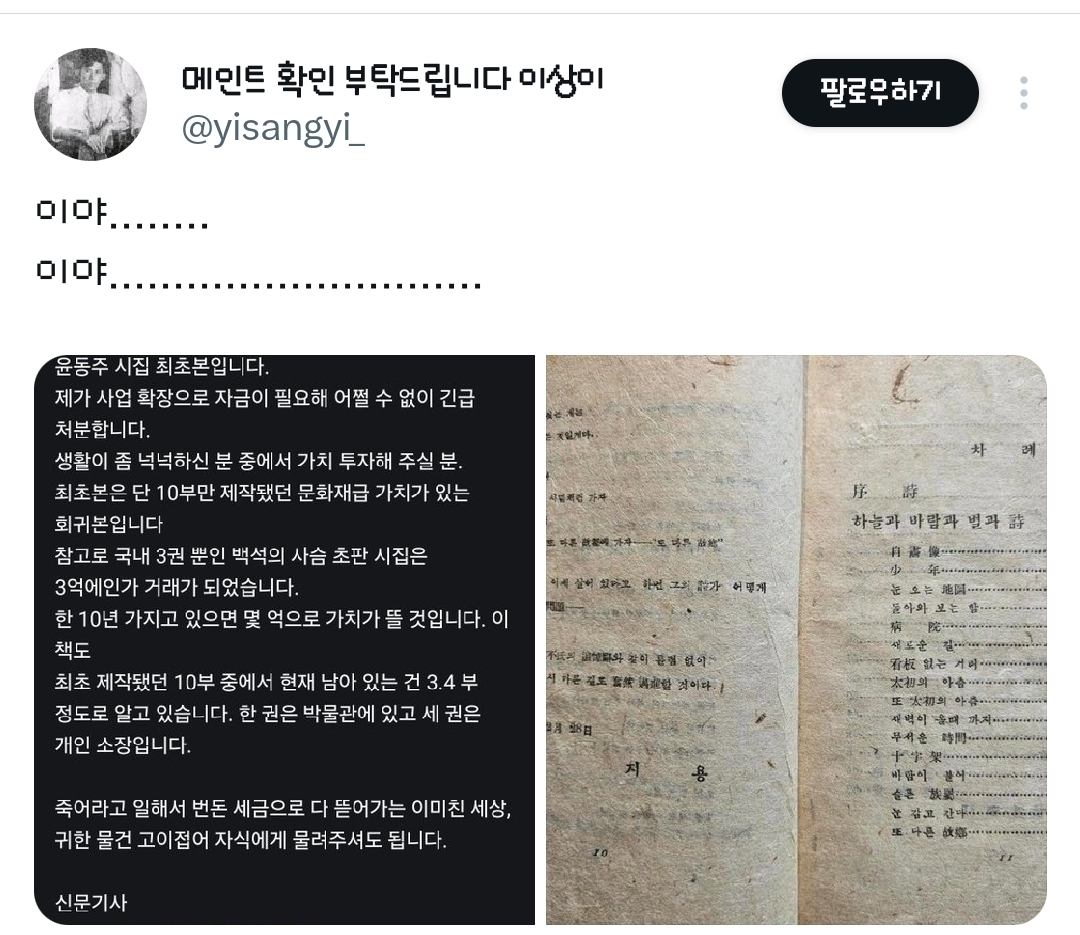 메인트 확인 부탁드립니다 이상이
@yisangyi_
팔로우하기
이야........
이야.............................
윤동주 시집 최초본입니다.
제가 사업 확장으로 자금이 필요해 어쩔 수 없이 긴급
처분합니다.
생활이 좀 넉넉하신 분 중에서 가치 투자해 주실 분.
최초본은 단 10부만 제작됐던 문화재급 가치가 있는
회귀본입니다
참고로 국내 3권 뿐인 백석의 사슴 초판 시집은
3억에인가 거래가 되었습니다.
한 10년 가지고 있으면 몇 억으로 가치가 뜰 것입니다. 이
책도
최초 제작됐던 10부 중에서 현재 남아 있는 건 3.4 부
정도로 알고 있습니다. 한 권은 박물관에 있고 세 권은
개인 소장입니다.
죽어라고 일해서 번돈 세금으로 다 뜯어가는 이미친 세상,
귀한 물건 고이접어 자식에게 물려주셔도 됩니다.
신문기사
것일게다.
가자
또 다른 故鄕에 가자——"또 다른 故鄕"
이제 살어 있다고 하면 그의 詩가 어떻게
같이 틀림 없이
다른 길로 할 것이다
日
지 용
10
차 례
序 詩
하늘과 바람과 별과 詩
自 畵 像
少 年
눈 오는 地圖
돌아와 보는 밤
病 院
새로운 길
看板 없는 거리
太初의 아츰
또 太初의 아츰
새벽이 올때 까지
무서운 時間
十 字 架
바람이 불어
슬픈 族屬
눈 감고 간다
또 다른 故鄕
11